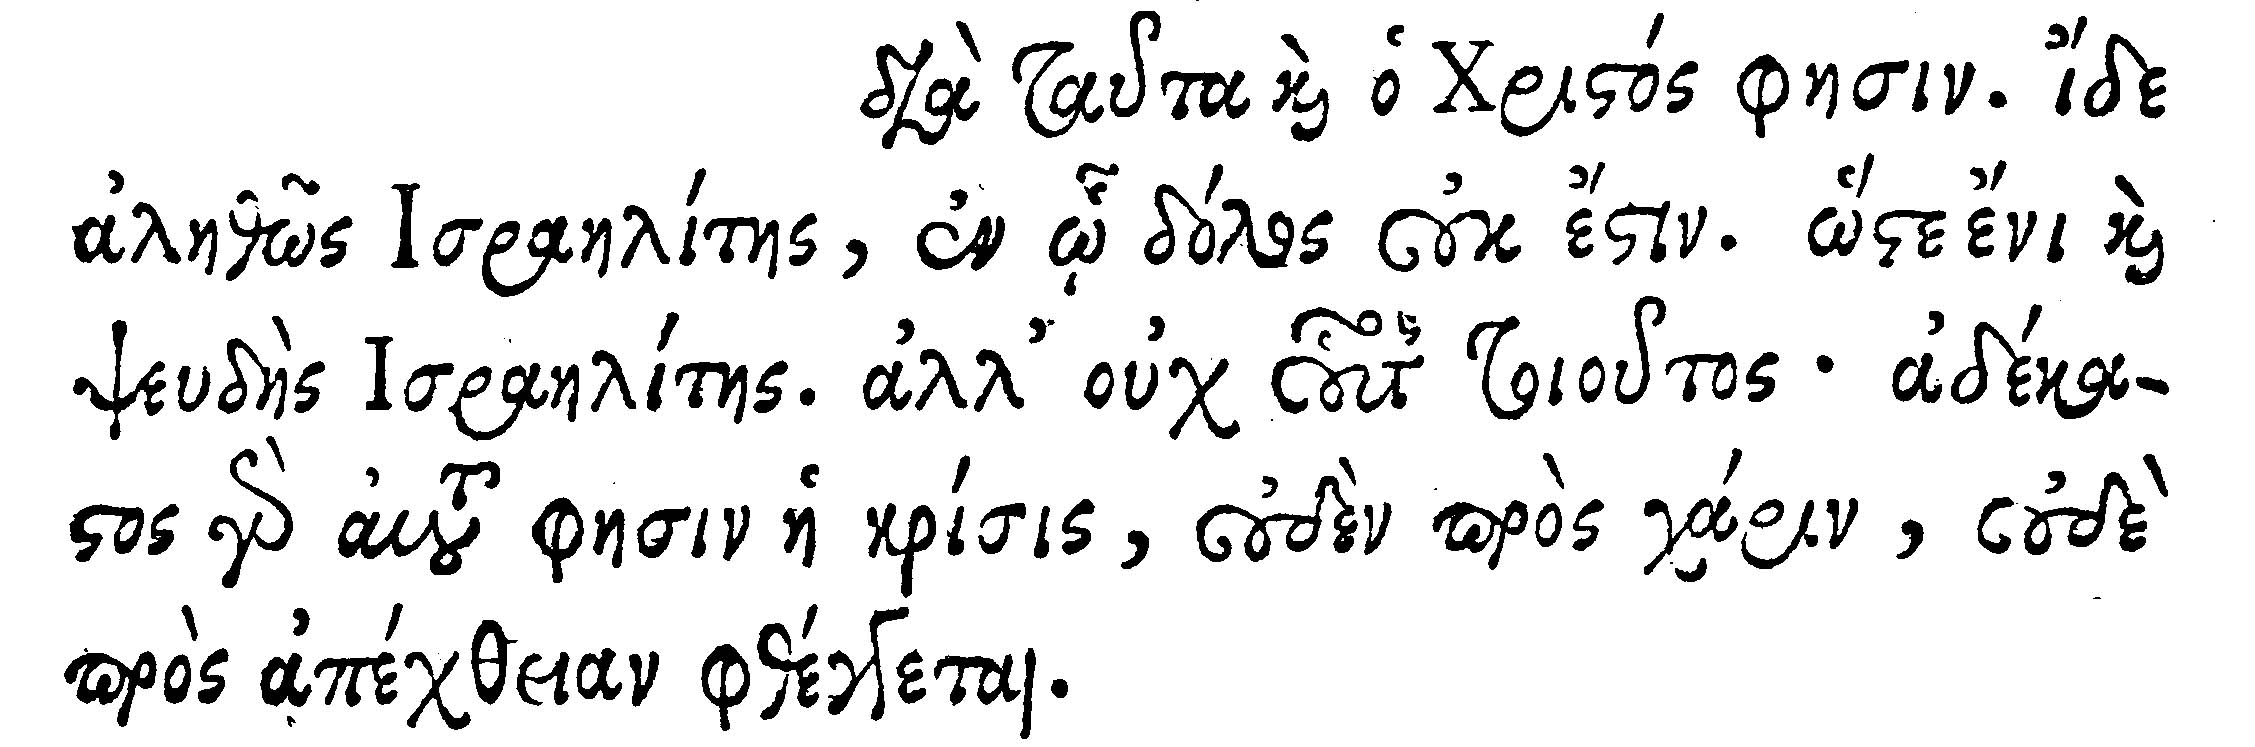 διὰ ταῦτα καὶ ὁ Χριστός φησιν. ἴδε
ἀληθῶς Ισραηλίτης, ἐν ᾧ δόλος οὐκ ἔστιν. ὥστε ἔνι καὶ
ψευδὴς Ισραηλίτης. ἀλλ᾽ οὐχ οὗτος τοιοῦτος· ἀδέκα-
στος γὰρ αὐτοῦ φησιν ἡ κρίσις, οὐδὲν πρὸς χάριν, οὐδὲ
πρὸς ἀπέχθειαν φθέγγεται.